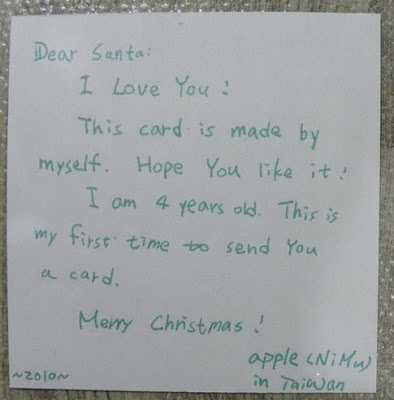 Dear Santa:
I Love You!
This card is made by
myself. Hope You like it!
I am 4 years old. This is
my first time to send You
a card.
Merry Christmas!
apple (NiMu)
~2010~
in Taiwan